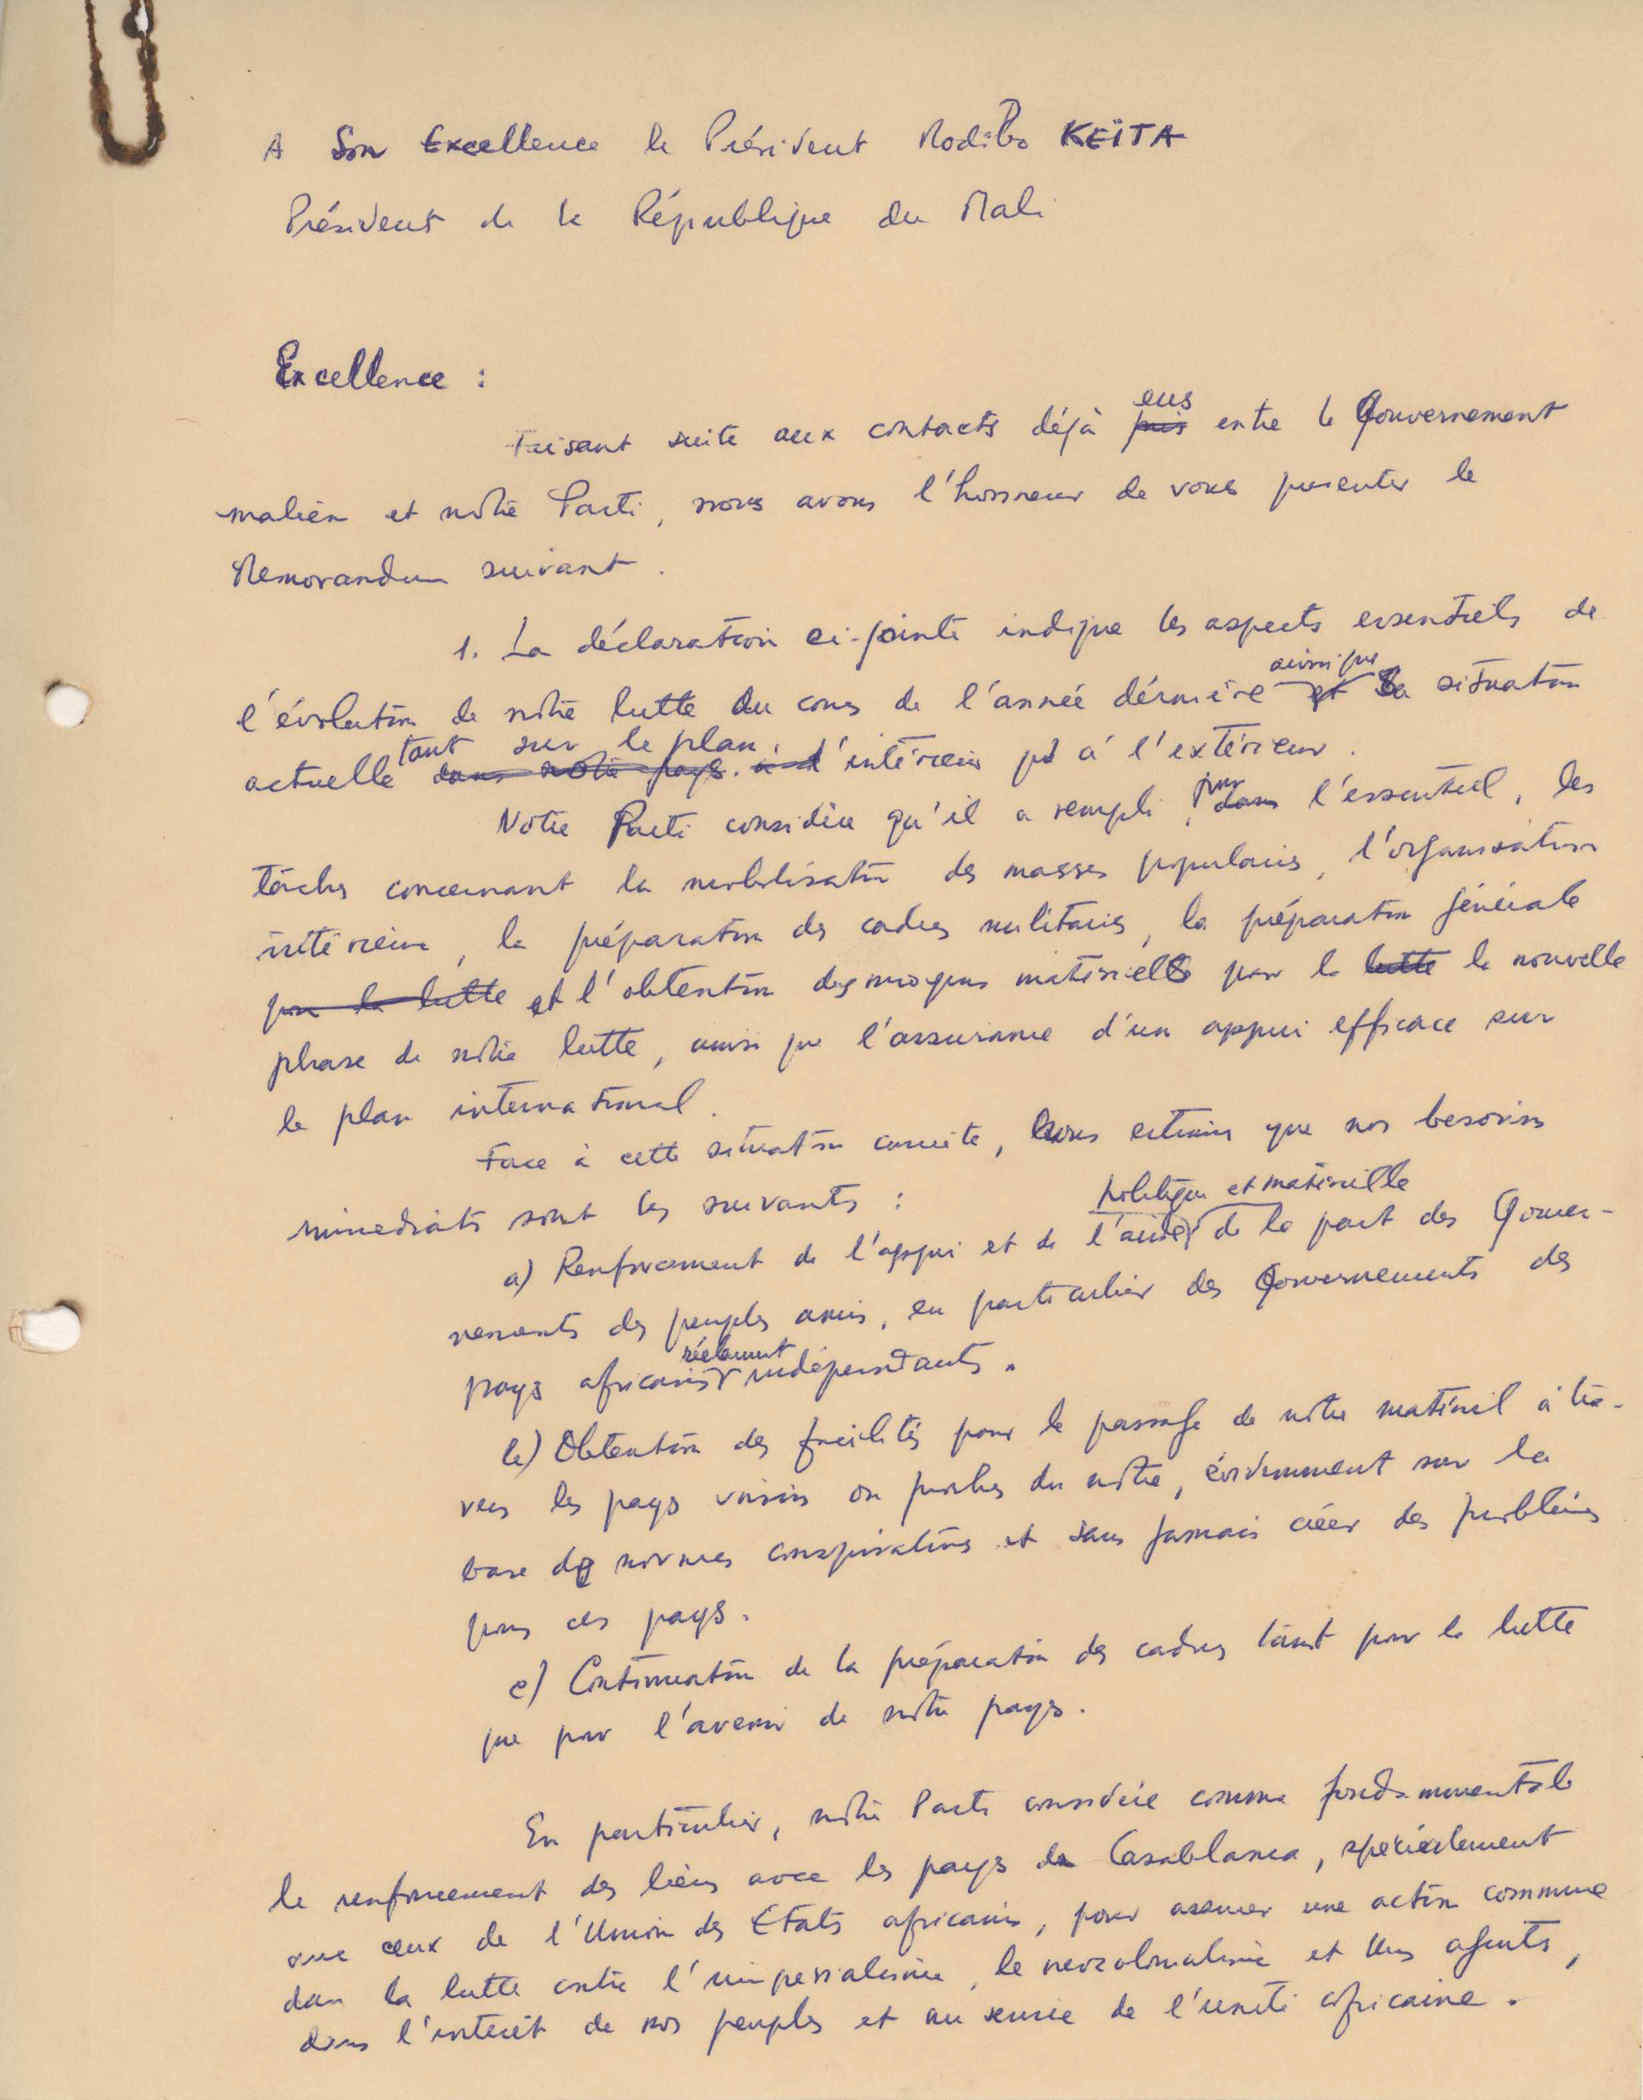 A Son Excellence le Président Modibo KEÏTA
Président de la République du Mali
Excellence :
Faisant suite aux contacts déjà eus entre le Gouvernement
malien et notre Parti, nous avons l'honneur de vous presenter le
Memorandum suivant.
1. La déclaration ci-jointe indique les aspects essentiels de
l'évolution de notre lutte au cours de l'année dérnière ainsi que la situation
actuelle tant sur le plan intérieur qu'à l'extérieur.
Notre Parti considère qu'il a rempli, pour l'essentiel, les
tâches concernant la mobilisation des masses populaires, l'organisation
intérieure, la préparation des cadres militaires, la préparation générale
pour la lutte et l'obtention des moyens matériels pour la lutte la nouvelle
phase de notre lutte, ainsi que l'assurance d'un appui efficace sur
le plan international.
Face à cette situation concrète, nous estimons que nos besoins
immediats sont les suivants :
a) Renforcement de l'appui et de l'aide politique et matérielle de la part des Gouver-
nements des peuples amis, en particulier des Gouvernements des
pays africains réelement indépendants.
b) Obtention des facilités pour le passage de notre matériel à tra-
vers les pays voisins ou proches du notre, évidemment sur la
base de normes conspiratives et sans jamais créer des problèmes
pour ces pays.
c) Continuation de la préparation des cadres tant pour la lutte
que pour l'avenir de notre pays.
En particulier, notre Parti considère comme fondammentale
le renforcement des liens avec les pays de Casablanca, spécialement
avec ceux de l'Union des Etats africains, pour assurer une action commune
dans la lutte contre l'imperialisme, le neocolonialisme et leurs agents,
dans l'intérêt de nos peuples et au service de l'unité africaine.